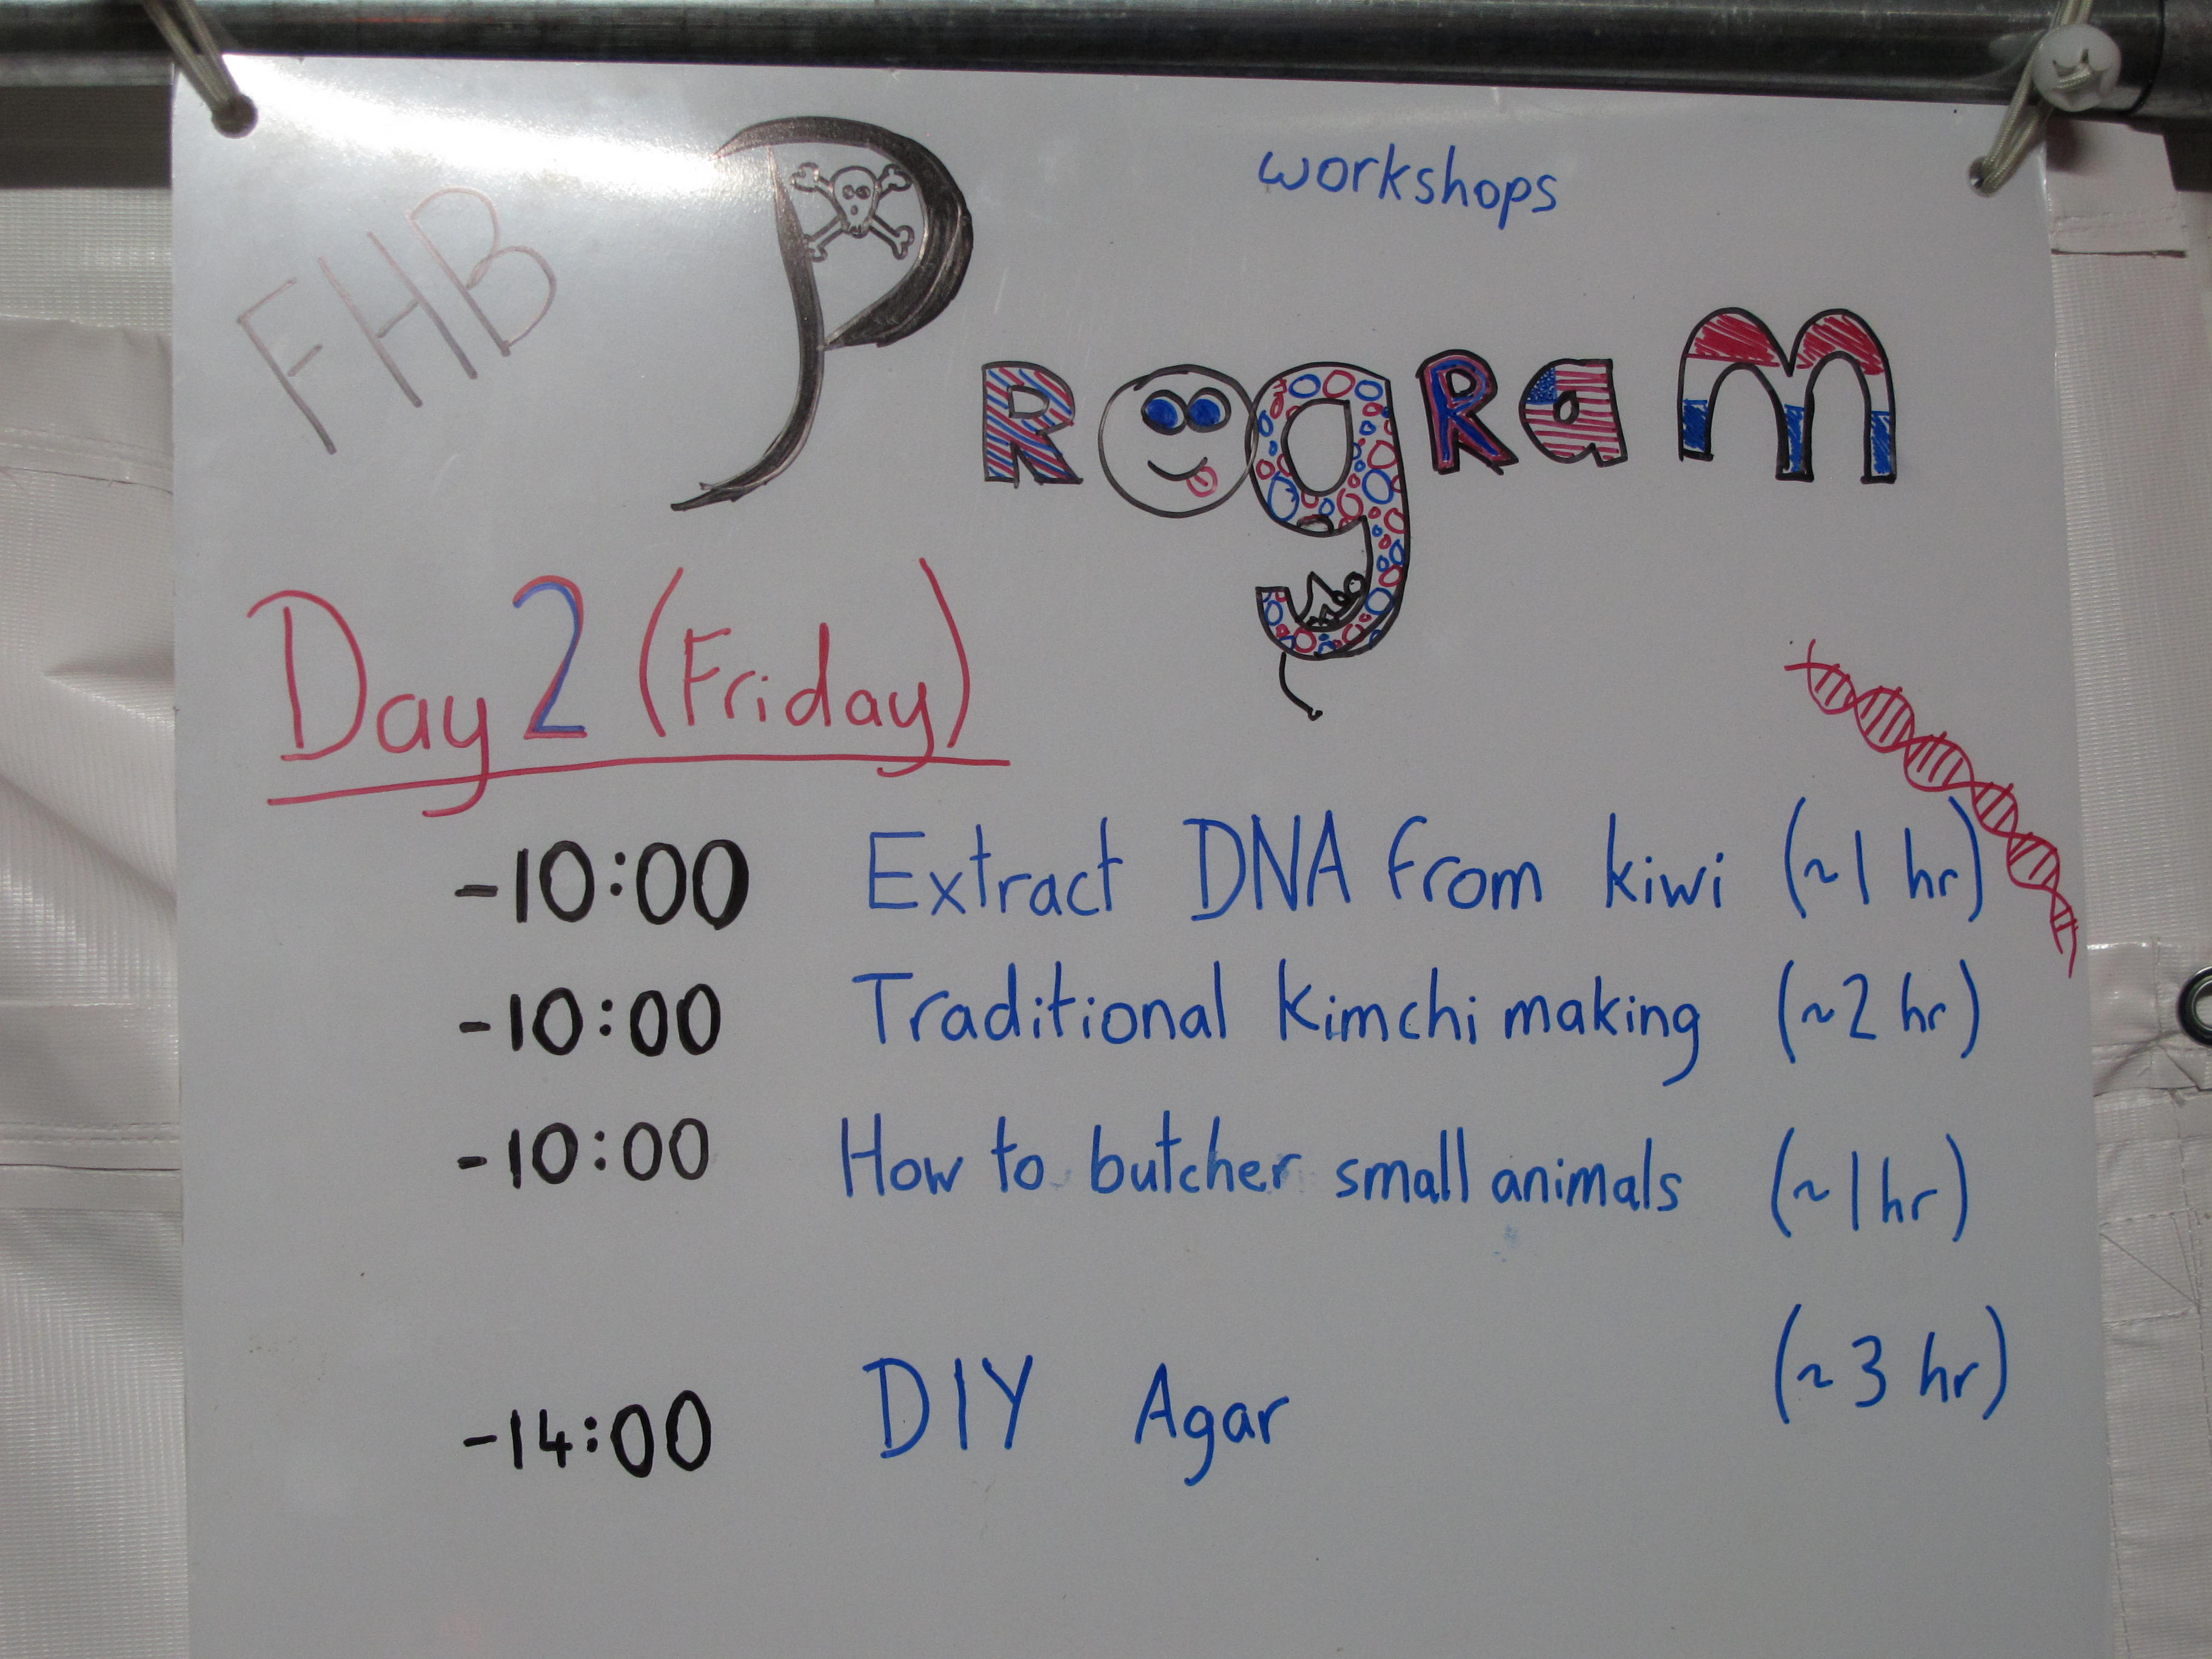 FHB
workshops
PRogRam
Day 2 (Friday)
-10:00 Extract DNA from kiwi (~1 hr)
-10:00 Traditional kimchi making (~2 hr)
-10:00 How to butcher small animals (~1hr)
-14:00 DIY Agar (~3 hr)